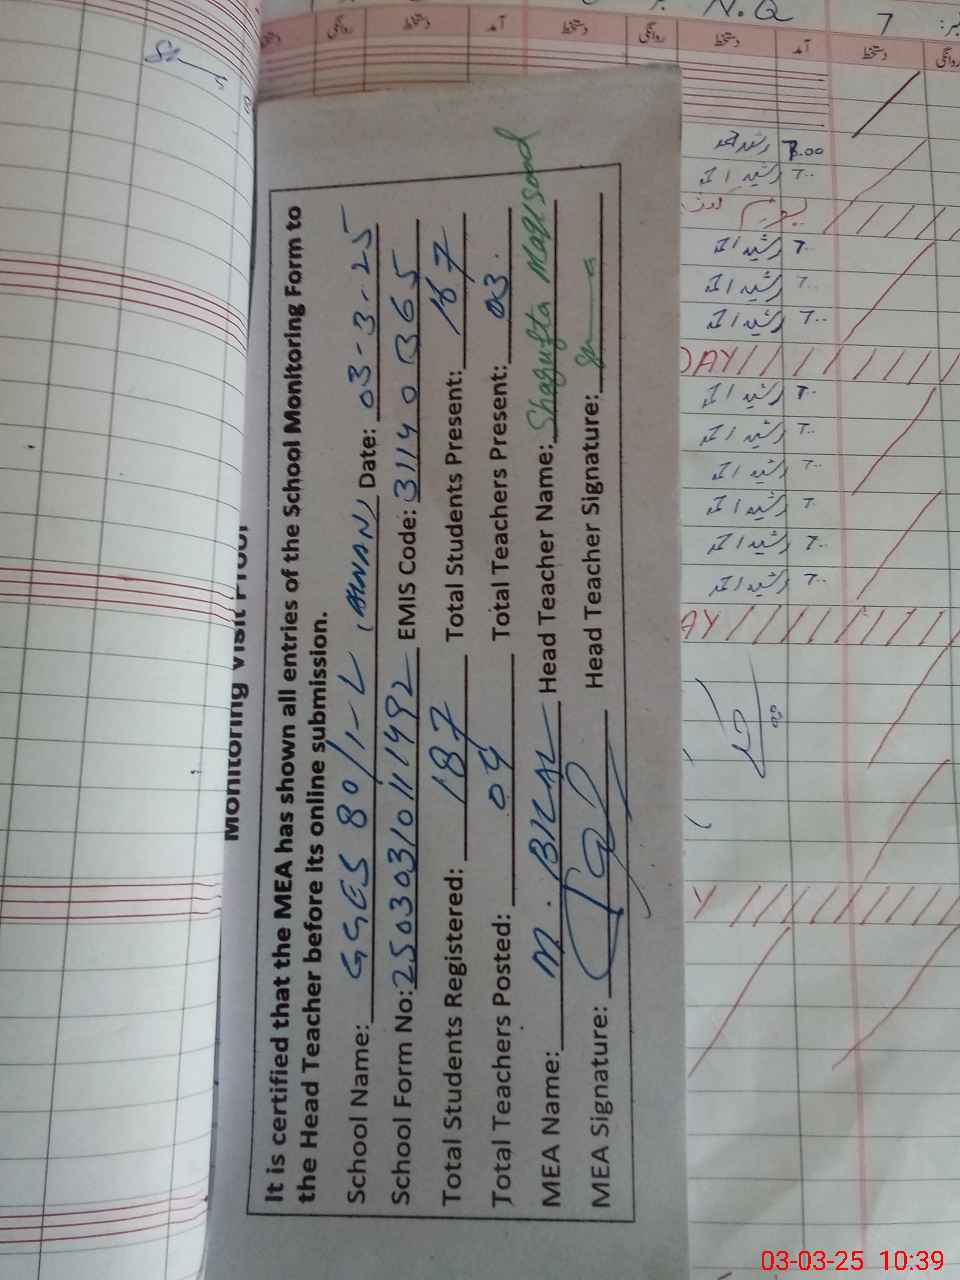 Monitoring Visit Proof
It is certified that the MEA has shown all entries of the School Monitoring Form to
the Head Teacher before its online submission.
School Name: GGES 80/1-L Date: 03-3-25
School Form No: 2503031011492 EMIS Code: 31140365
Total Students Registered: 187 Total Students Present: 167
Total Teachers Posted: 04 Total Teachers Present: 03.
MEA Name: M. BILAL Head Teacher Name: Shagufta Maqsood
MEA Signature: Head Teacher Signature:
N.Q 7
روانگی دستخط آمد دستخط روانگی دستخط آمد دستخط روانگی
رشید احمد 7.00
رشید احمد 7..
رشید احمد 7..
رشید احمد 7..
رشید احمد 7..
DAY
رشید احمد 7..
رشید احمد 7..
رشید احمد 7..
رشید احمد 7..
رشید احمد 7..
رشید احمد 7..
AY
Y
03-03-25 10:39